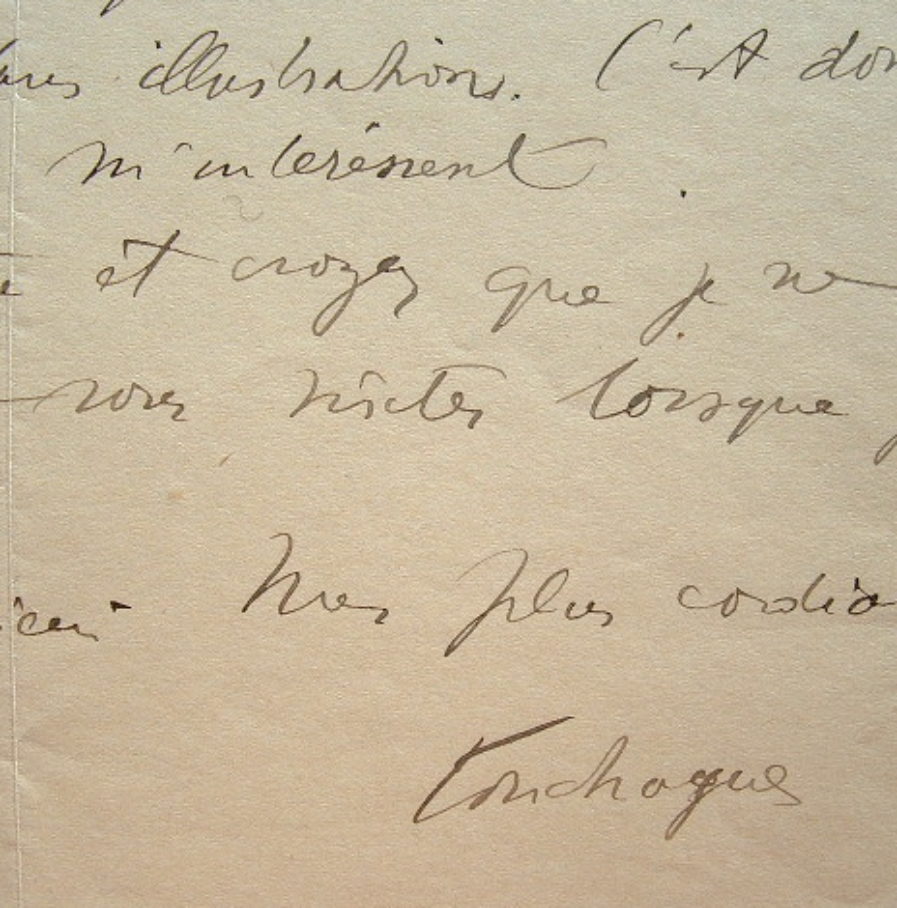 illustrations. C'est don
m'intéressent.
et croyez que je ne
vous visiter lorsque
Mes plus cordia
Touchagues